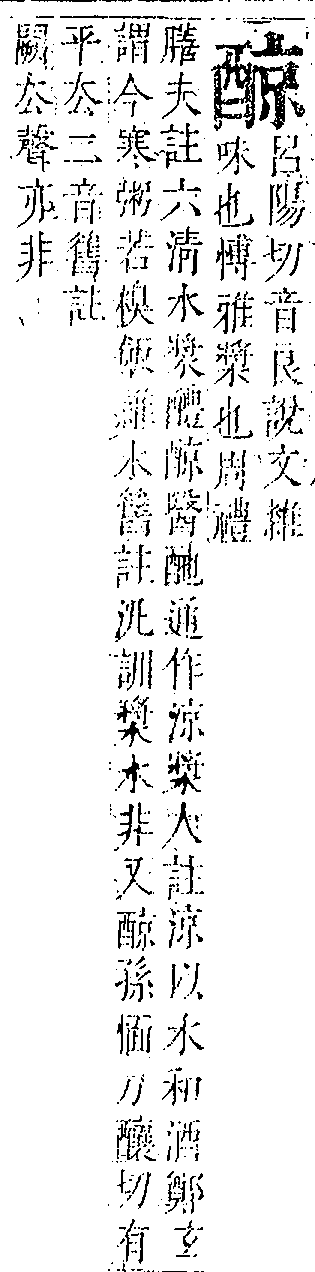 醇
呂陽切音良說文雜
味也博雅漿也周禮
膳夫註六清水漿醴䣼醫酏通作涼漿人註涼以水和酒鄭玄
謂今寒粥若糗飯雜水舊註汎訓漿水非又䣼孫愐力釀切有
平厺二音舊註
闕厺聲亦非